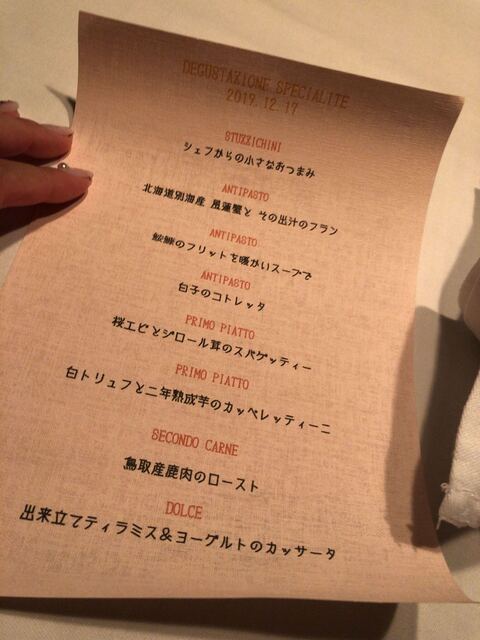 DEGUSTAZIONE SPECIALITE
2019.12.17
STUZZICHINI
シェフからの小さなおつまみ
ANTIPASTO
北海道別海産 風蓮蟹と その出汁のフラン
ANTIPASTO
鮟鱇のフリットを暖かいスープで
ANTIPASTO
白子のコトレッタ
PRIMO PIATTO
桜エビとジロール茸のスパゲッティー
PRIMO PIATTO
白トリュフと二年熟成芋のカッペレッティーニ
SECONDO CARNE
鳥取産鹿肉のロースト
DOLCE
出来立てティラミス&ヨーグルトのカッサータ